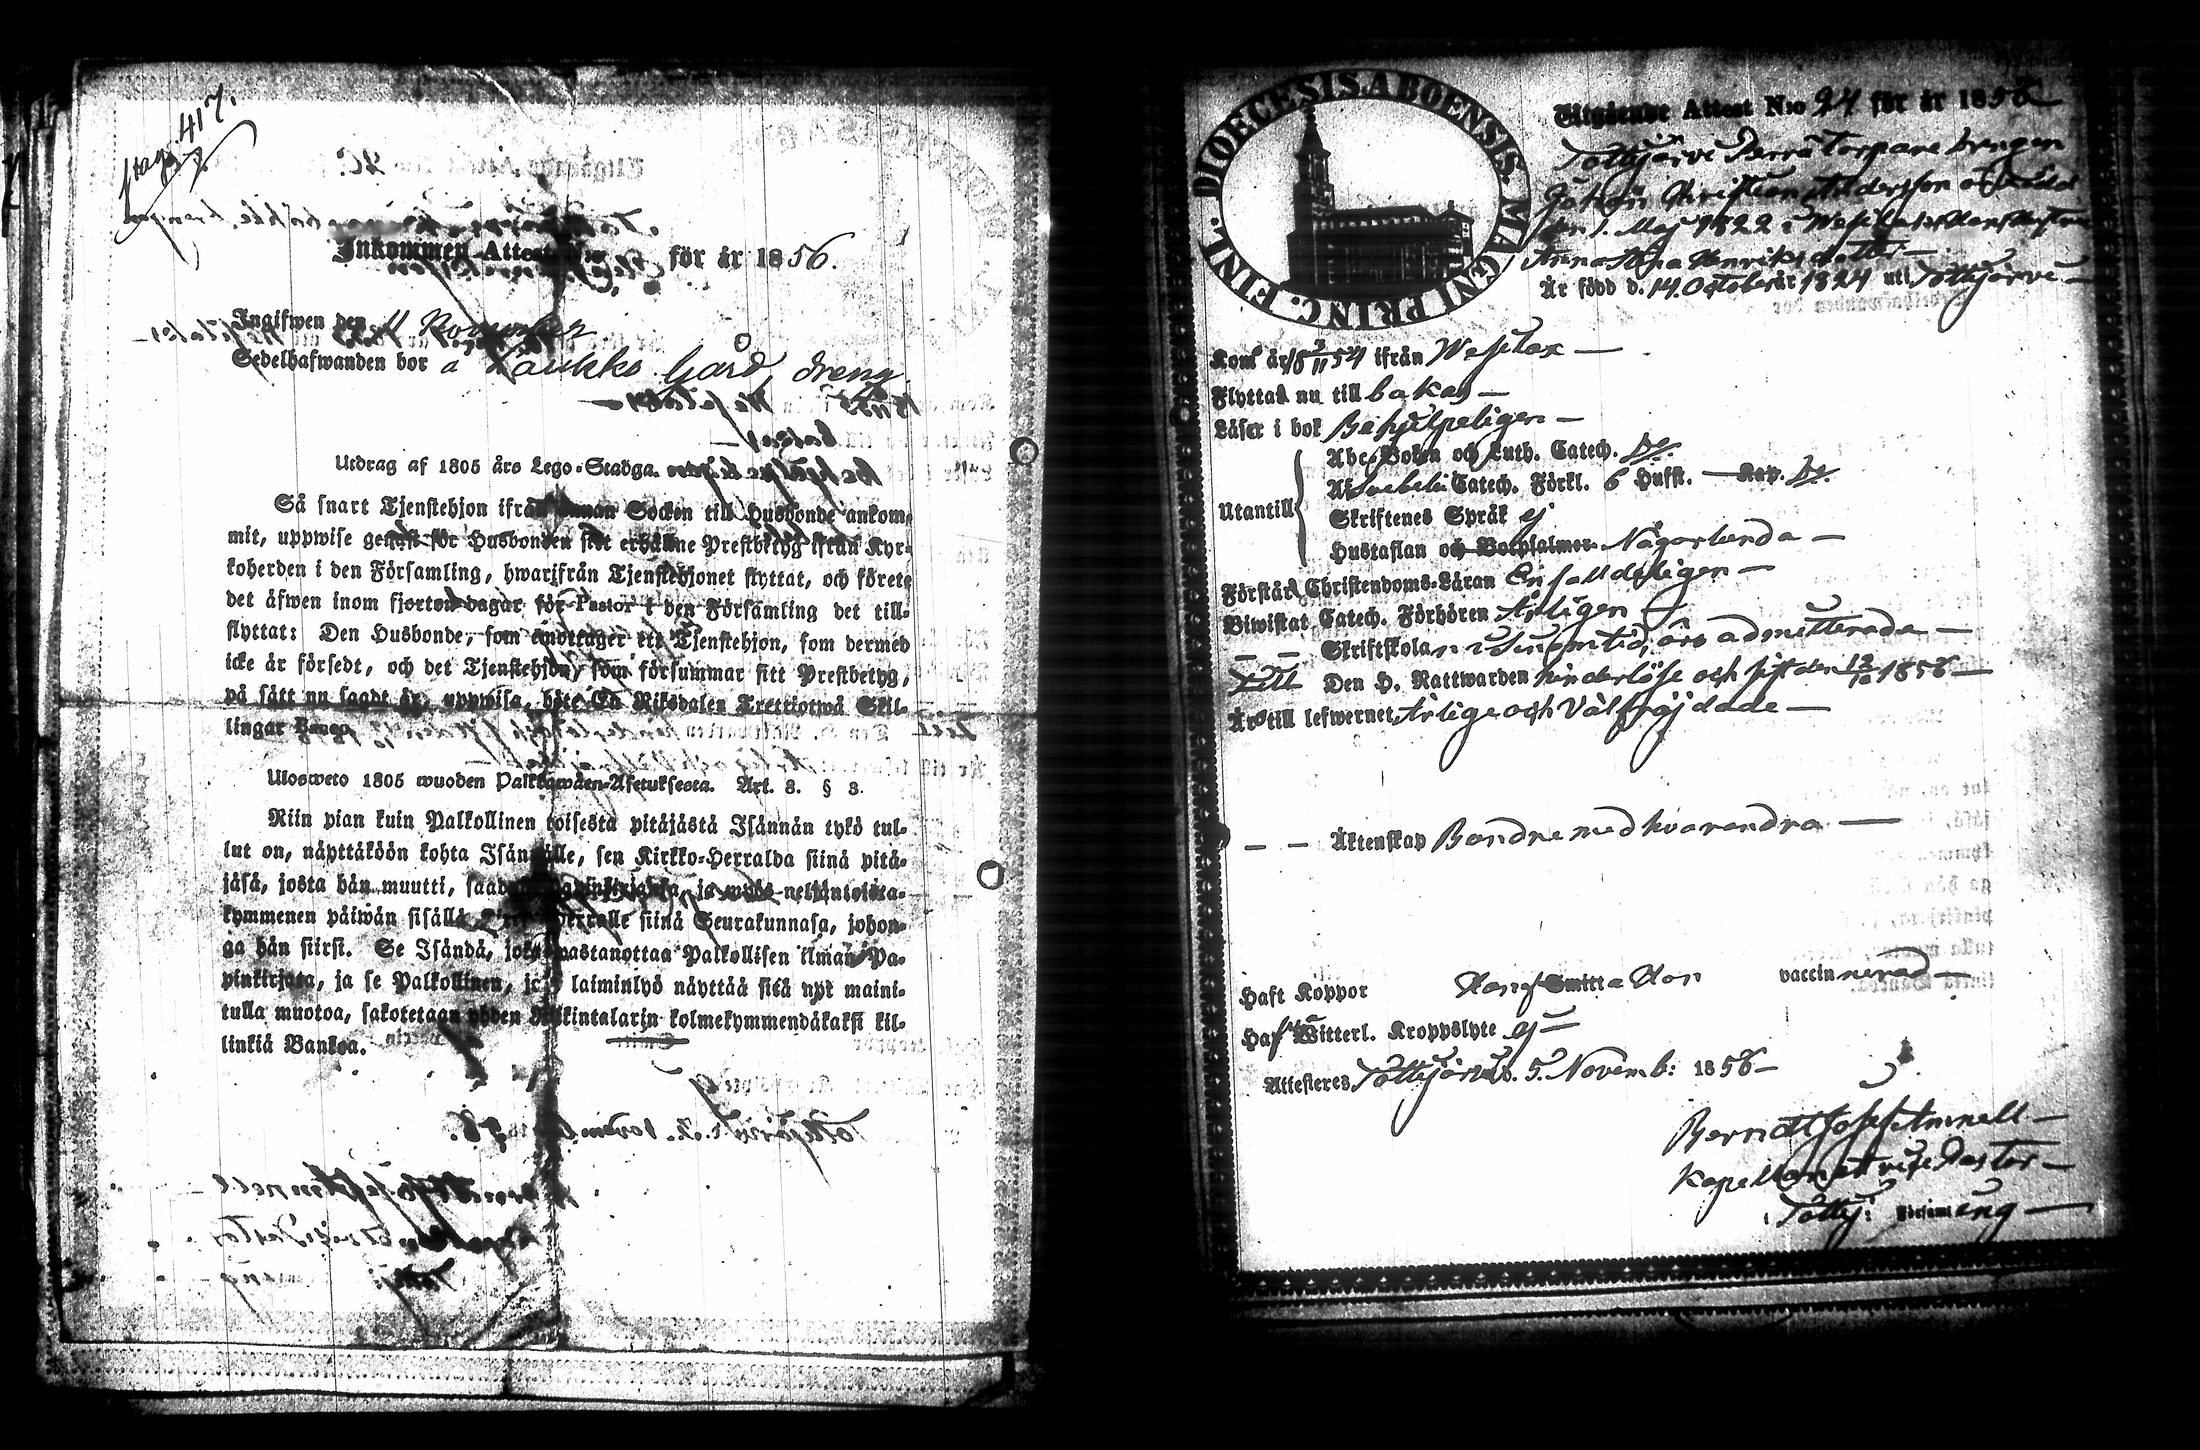 pag. 417.
Inkommen Attest för år 1856.
Ingifwen den 11 November
Sedelhafwanden bor å Laukko Gård, dreng
Utdrag af 1805 års Lego-Stadga.
Så snart Tjenstehjon ifrån annan Socken till Husbonde ankom-
mit, uppwise genast för Husbonden sitt erhållne Prestbetyg ifrån Kyr-
koherden i den Församling, hwarifrån Tjenstehjonet flyttat, och förete
det äfwen inom fjorton dagar för Pastor i den Församling det till-
flyttat: Den Husbonde, som emottager ett Tjenstehjon, som dermed
icke är försedt, och det Tjenstehjon, som försummar sitt Prestbetyg,
på sätt nu sagdt är, uppwisa, böte En Riksdaler Trettiotwå Skil-
lingar Banco.
Ulosweto 1805 wuoden Palkkawäen-Asetuksesta. Art. 3. § 3.
Niin pian kuin Palkollinen toisesta pitäjästä Isännän tykö tul-
lut on, näyttäköön kohta Isännälle, sen Kirkko-Herralda siinä pitä-
jäsä, josta hän muutti, saadun Papinkirjansa, ja myös neljäntoista-
kymmenen päiwän sisällä Kirkko-Herralle siinä Seurakunnasa, johon-
ga hän siirsi. Se Isändä, joka wastanottaa Palkollisen ilman Pa-
pinkirjata, ja se Palkollinen, joka laiminlyö näyttää sitä nyt maini-
tulla muotoa, sakotetaan yhden Riikintalarin kolmekymmendäkaksi kil-
linkiä Bankoa.
DIOECESIS ABOENSIS. MAGNI PRINC. FINL.
Utgående Attest N:o 94 för år 1856
Tottijärvi Torpare drengen
Johan Christian Andersson
den 1. Maj 1822 i Wesilax
Anna Stina Henriksdotter
Är född d. 14. October år 1824 uti Tottijärvi
Kom år 18 3/11 54 ifrån Wesilax
Flyttar nu till bakas
Läser i bok Behjelpeligen
Utantill
Abc-Boken och Luth. Catech. Do.
Svebelii Catech. Förkl. 6 Hufst. Kap. Do.
Skriftenes Språk ej
Hustaflan och Botpsalmer Någorlunda
Förstår Christendoms-Läran Enfalldeligen
Biwistat Catech. Förhören Årligen
Skriftskolan i sinom tid, äro admitterade
Till Den H. Nattwarden hinderlöse och sist den 12/10 1856
Äro till lefwernet Ärlige och Välfräjdade
Äktenskap Bundne med hvarandra
Haft Koppor Han Smitta Hon vaccinnerad
Haf Witterl. Kroppslyte ej
Attesteres Tottijärvi d. 5. Novemb: 1856
Berndt Josef Amnell
Kapellan et vice Pastor
i Tottij: Församling